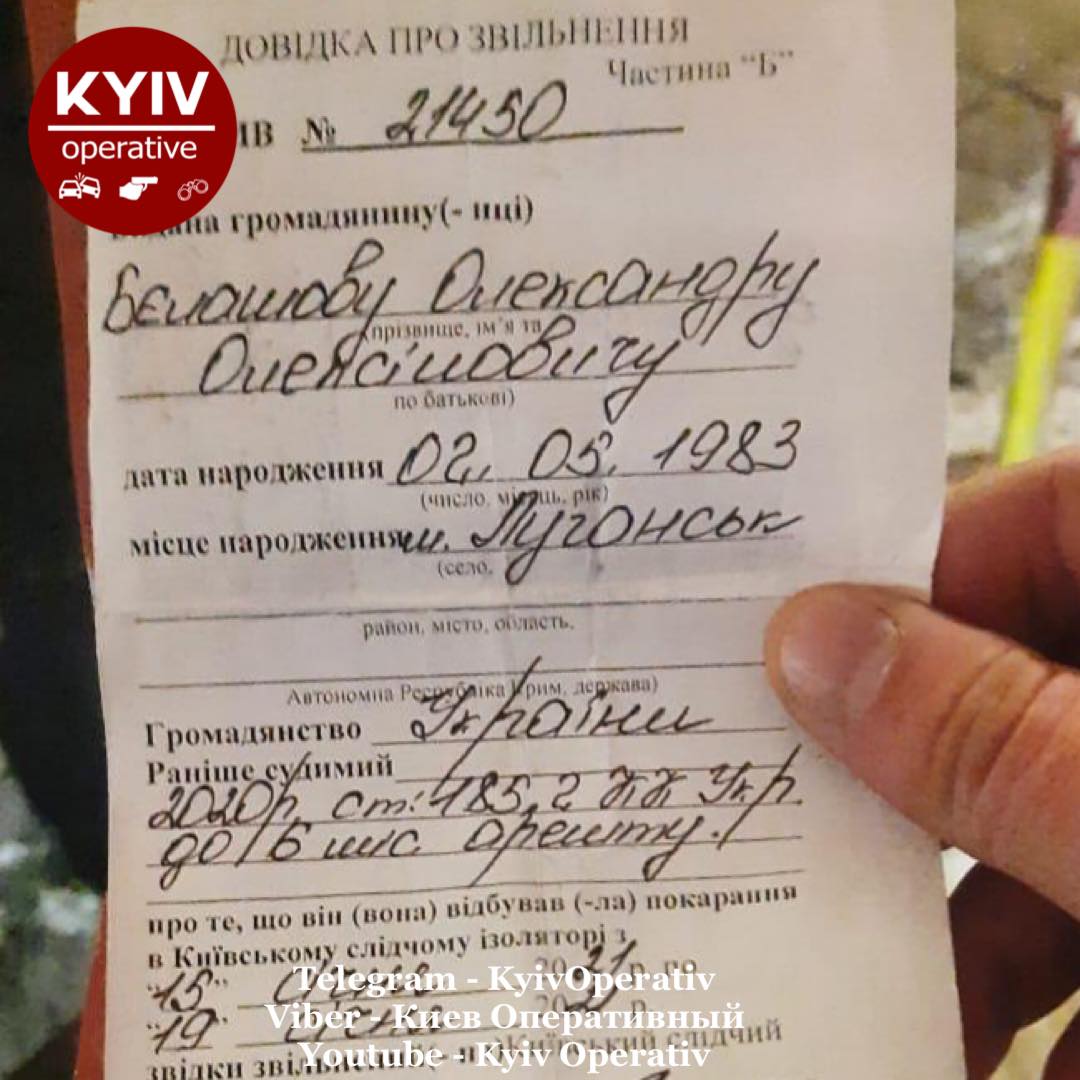 KYIV
operative
ДОВІДКА ПРО ЗВІЛЬНЕННЯ
Частина “Б”
ІВ № 21450
громадянину(- нці)
Бєлашову Олександру
(прізвище, ім’я та
Олексійовичу
по батькові)
дата народження 02. 05. 1983
(число, місяць, рік)
місце народження м. Луганськ
(село,
район, місто, область,
Автономна Республіка Крим, держава)
Громадянство України
Раніше судимий
2020р. ст. 185, 2 КК Укр.
до 6 міс. арешту.
про те, що він (вона) відбував (-ла) покарання
в Київському слідчому ізоляторі з
“15” 2021 р. по
“19” р.
звідки Київський слідчий
Telegram - KyivOperativ
Viber - Киев Оперативный
Youtube - Kyiv Operativ